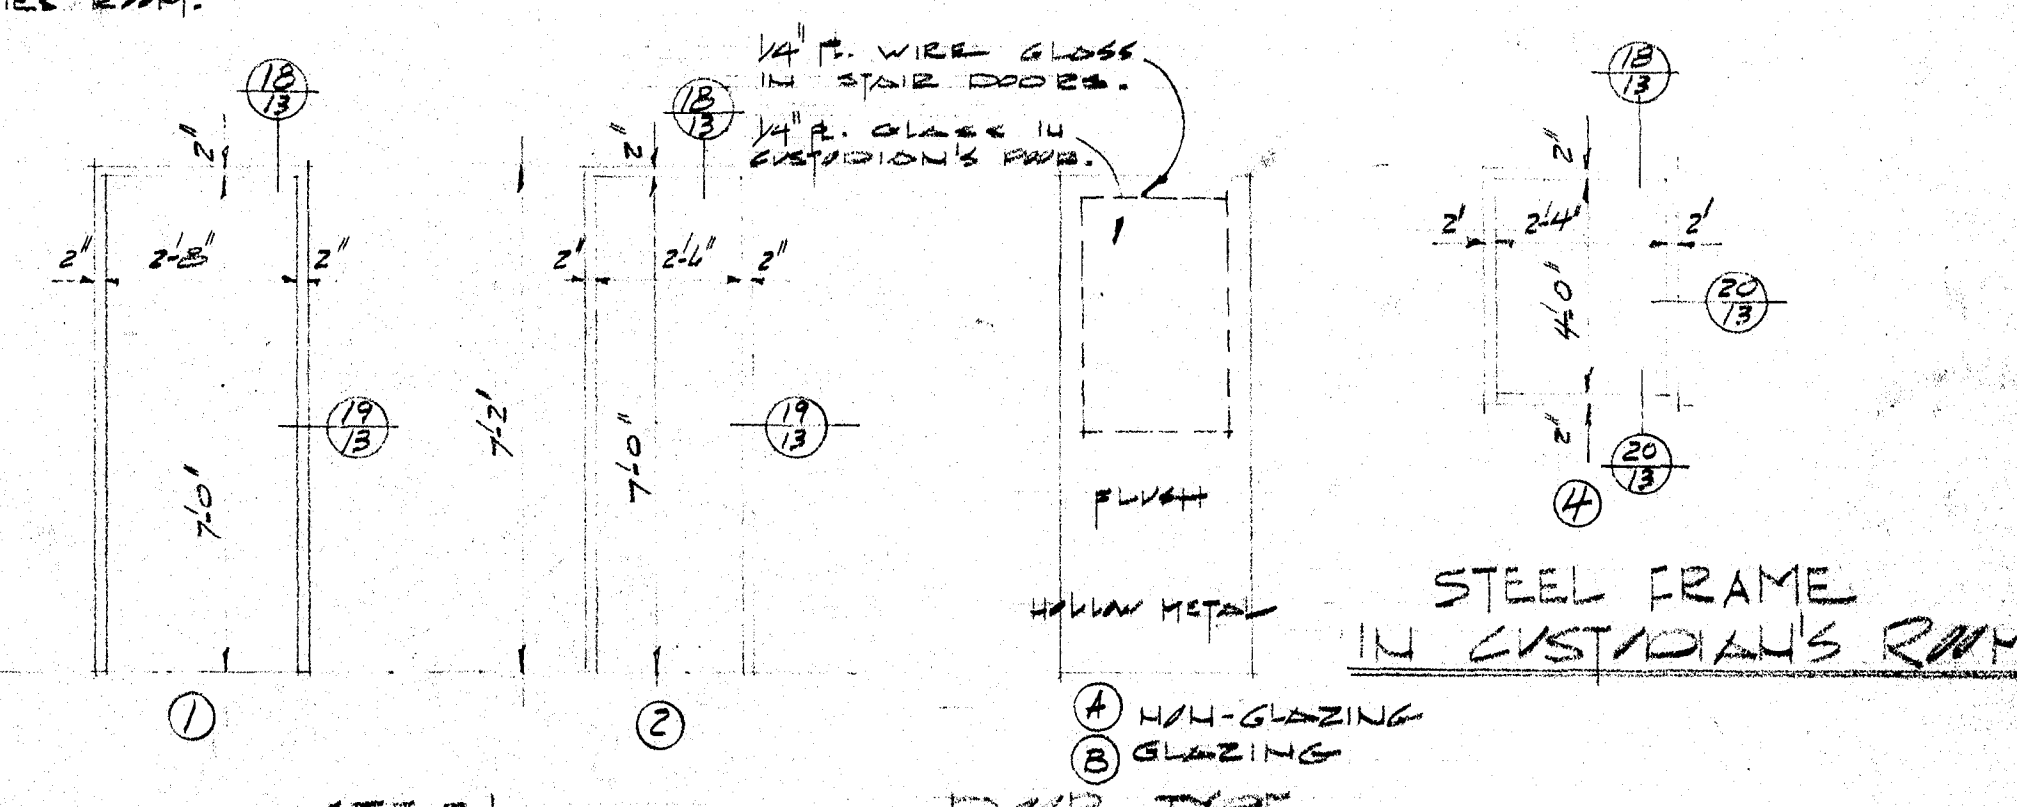 ROOM.
18
13
2"
2"
2'-8"
2"
19
13
7'-0"
1
7'-2"
18
13
2"
2"
2"
7'-0"
19
13
2
1/4" PL. WIRE GLASS
IN STAIR DOORS.
1/4" PL. GLASS IN
CUSTODION'S DOOR.
FLUSH
HOLLOW METAL
A NON-GLAZING
B GLAZING
DOOR TYPE
STEEL
18
13
2"
2'
2'-4"
2'
4'-0"
20
13
2"
20
13
4
STEEL FRAME
IN CUSTODIAN'S ROOM